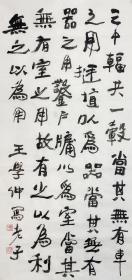 三十輻共一轂當其無有車
之用埏埴以為器當其無有
器之用鑿戶牖以為室當其
無有室之用故有之以為利
無之以為用 王學仲寫老子